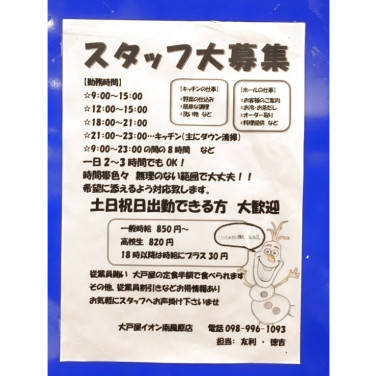 スタッフ大募集
【勤務時間】
☆9:00～15:00
☆12:00～15:00
☆18:00～21:00
☆21:00～23:00…キッチン(主にダウン清掃)
☆9:00～23:00の間の8時間 など
【キッチンの仕事】
*野菜の仕込み
*簡単な調理
*洗い物 など
【ホールの仕事】
*お客様のご案内
*お冷・お茶だし
*オーダー取り
*料理提供 など
一日2～3時間でもOK!
時間帯色々 無理のない範囲で大丈夫!!
希望に添えるよう対応致します。
土日祝日出勤できる方 大歓迎
一般時給 850円～
高校生 820円
18時以降は時給にプラス30円
従業員賄い 大戸屋の定食半額で食べられます
その他、従業員割引きなどお得情報あり
お気軽にスタッフへお声掛け下さいませ
大戸屋イオン南風原店 電話 098-996-1093
担当: 友利・徳吉